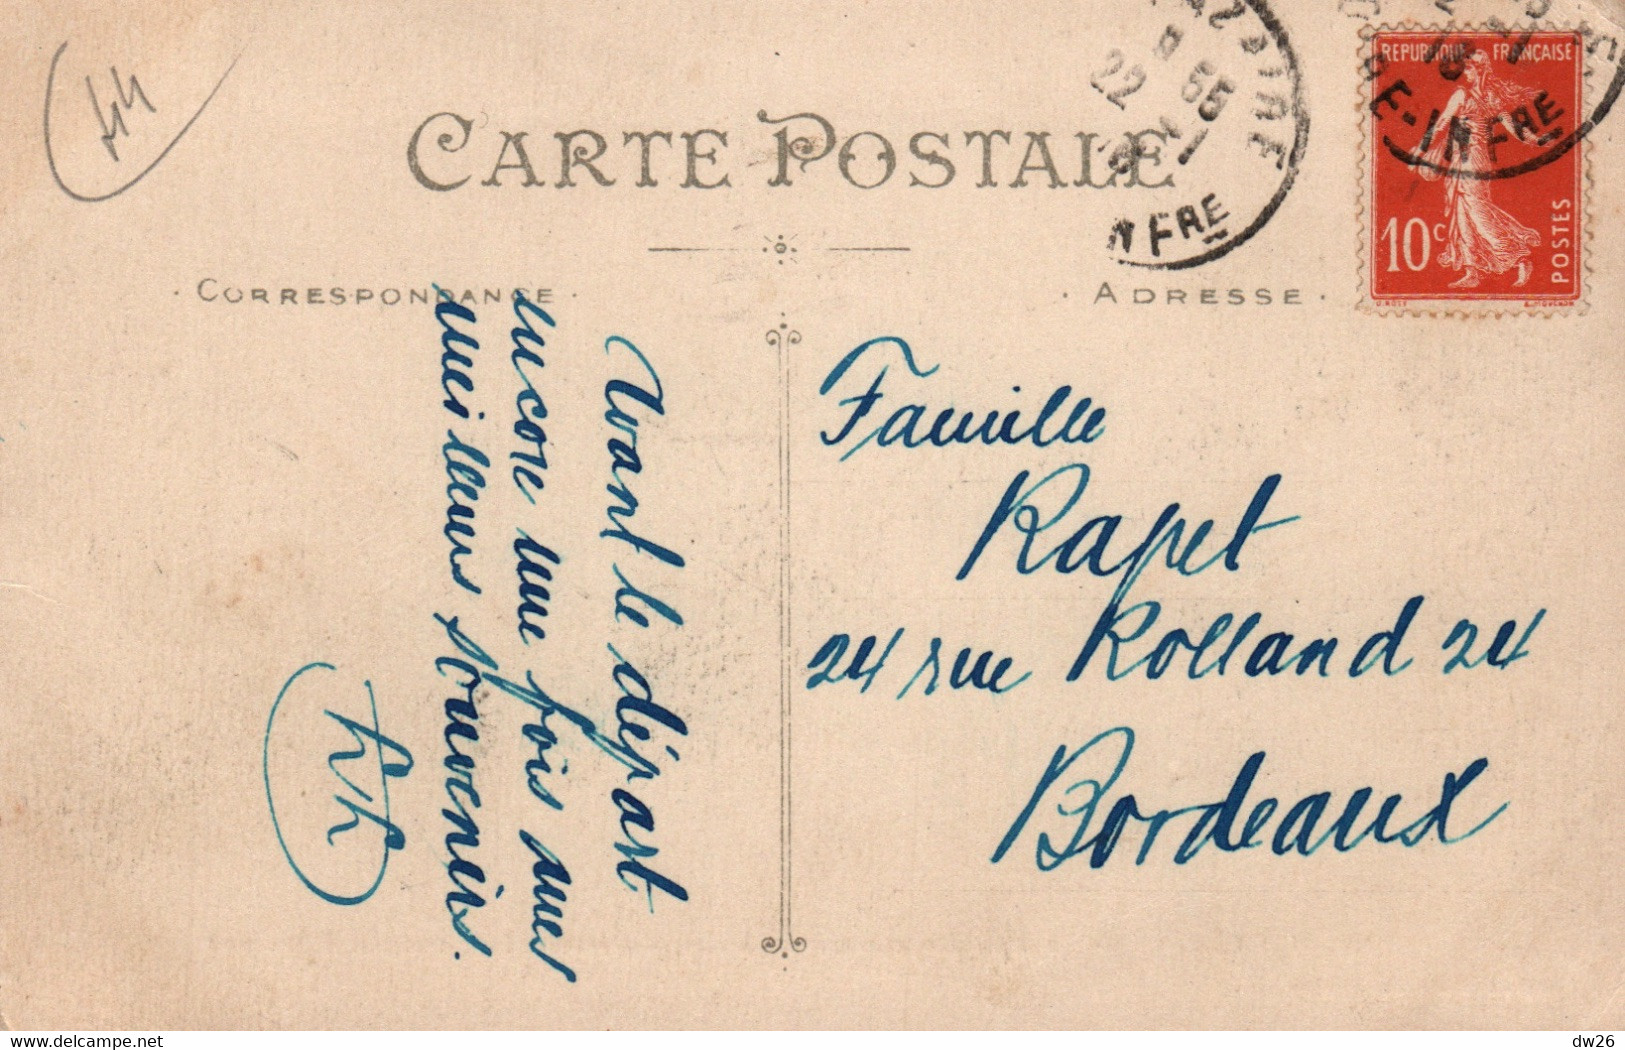 44
CARTE POSTALE
CORRESPONDANCE
ADRESSE
REPUBLIQUE FRANÇAISE
10c
POSTES
INFRE
E-INFRE
Avant le départ
encore une fois mes
meilleurs souvenirs.
Famille
Rapet
24 rue Rolland 24
Bordeaux
dw26